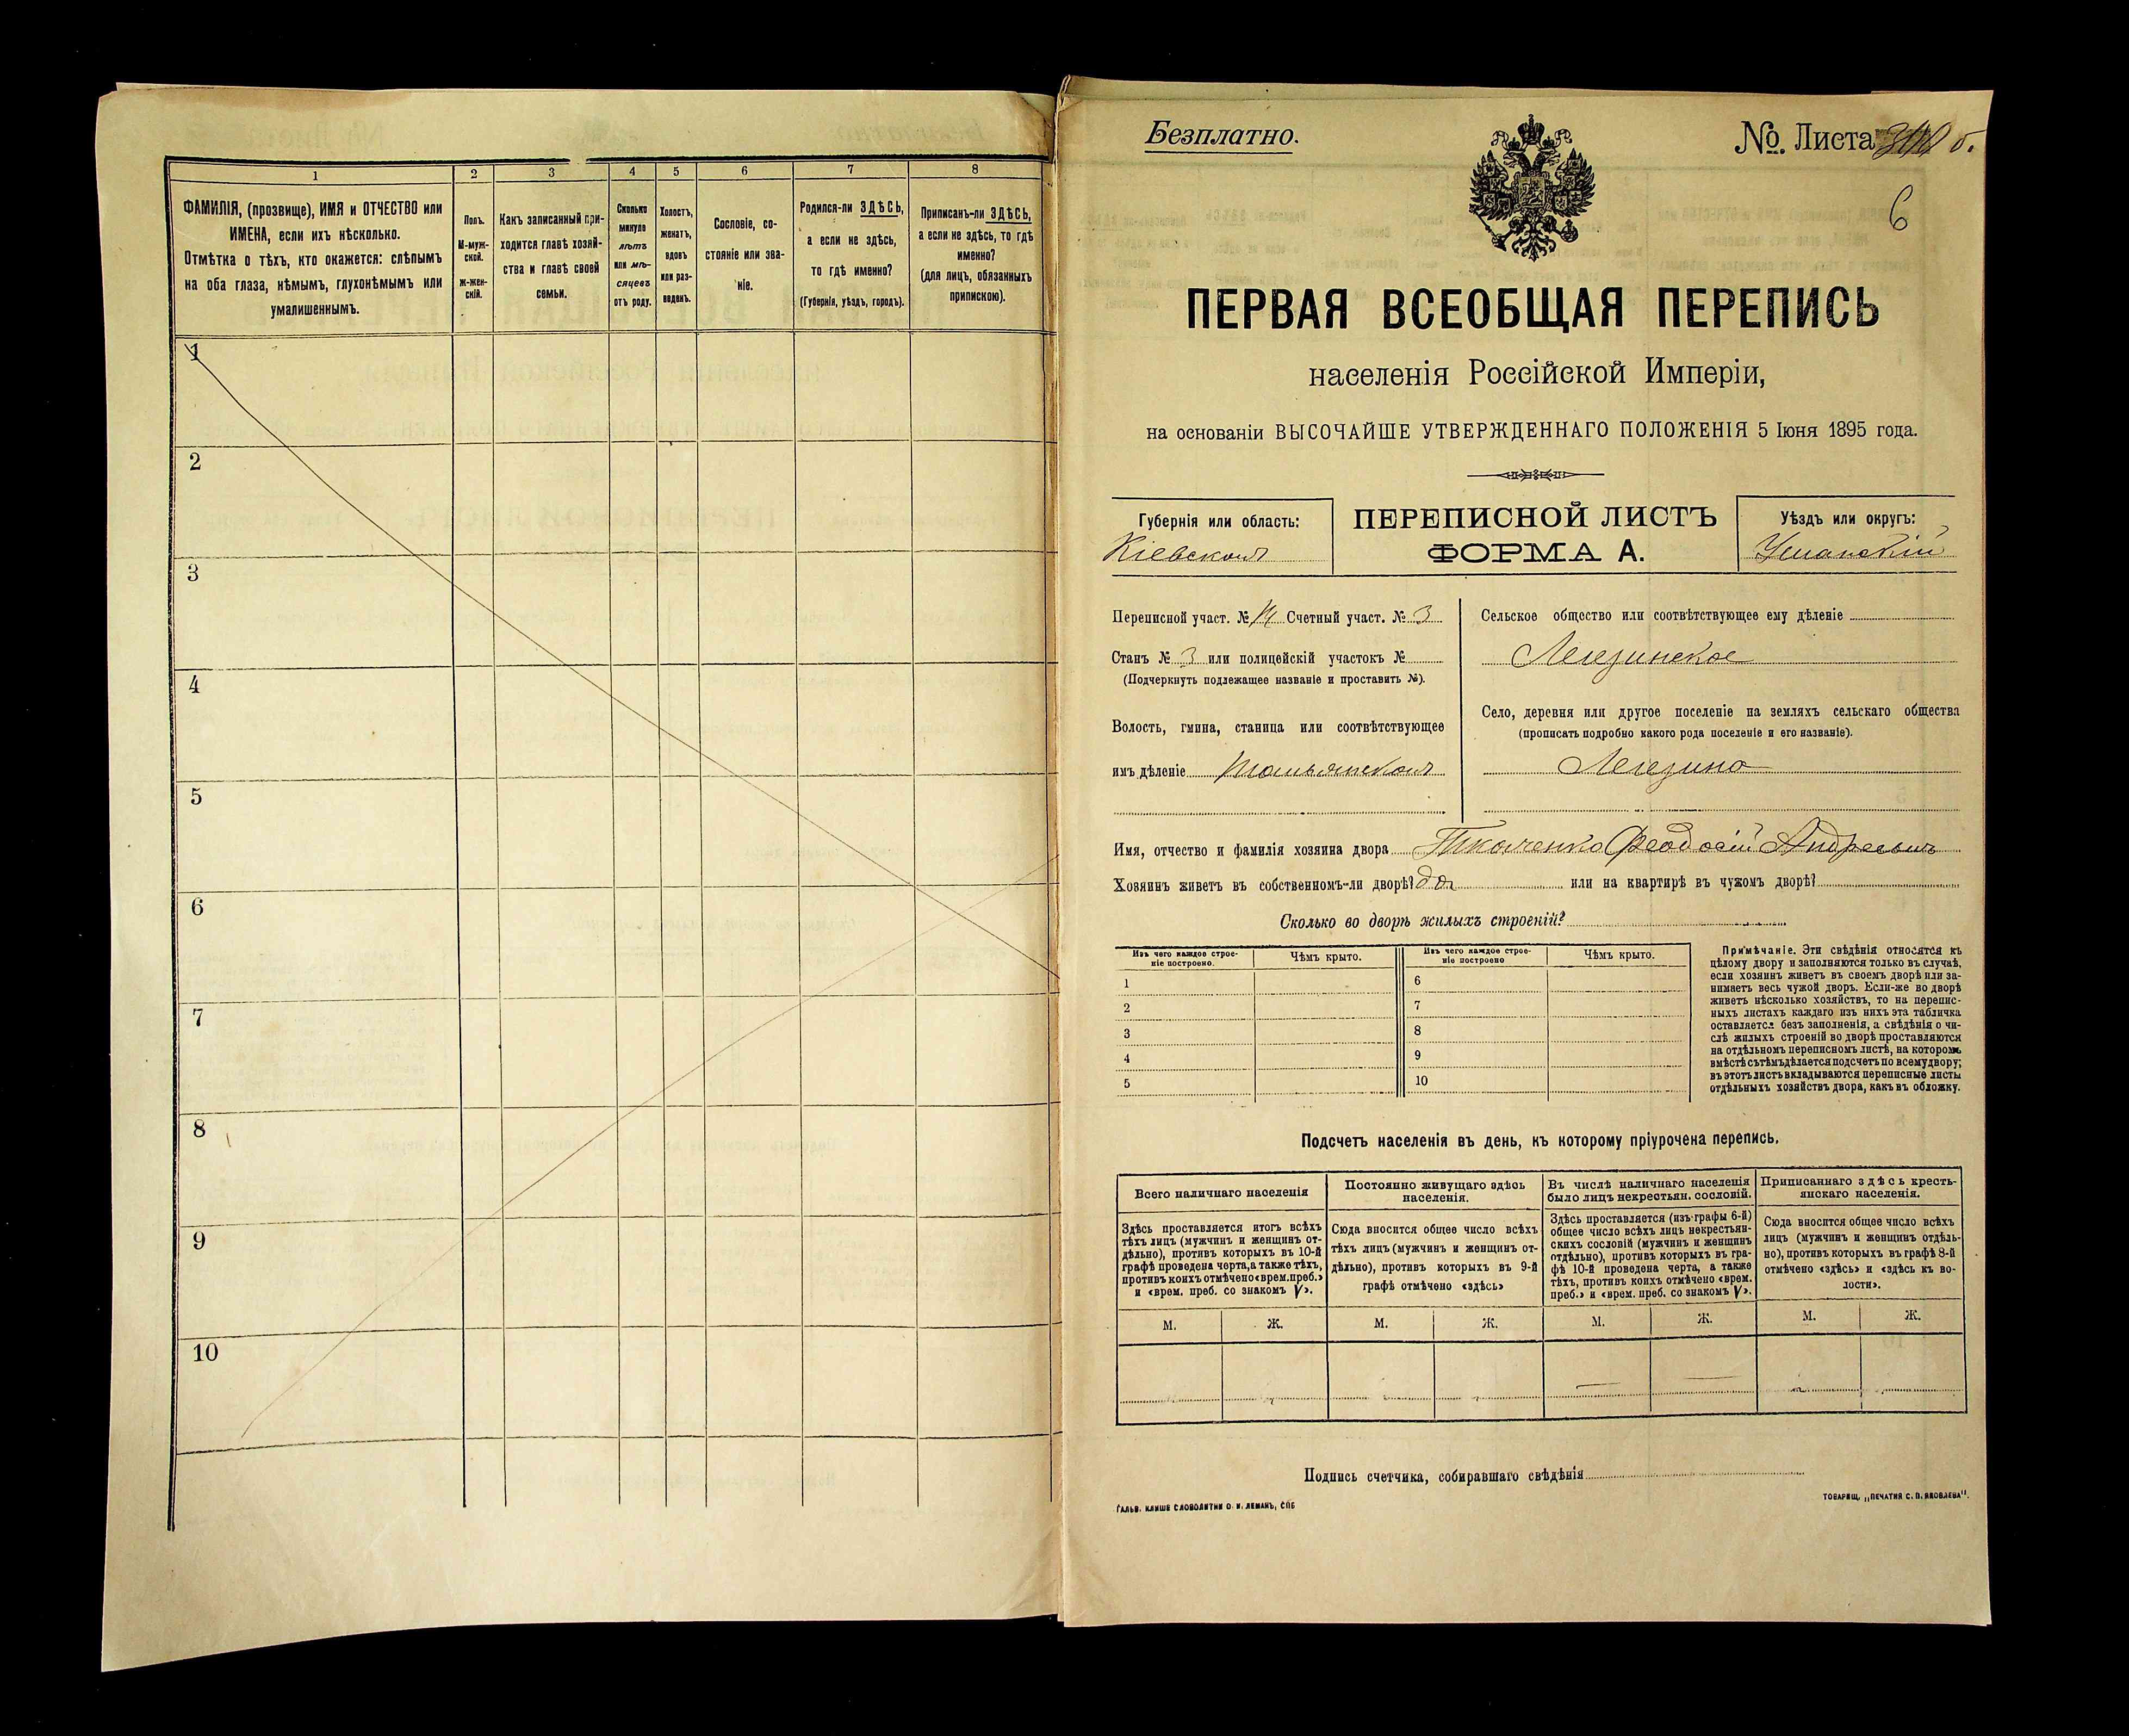 1 2 3 4 5 6 7 8
ФАМИЛІЯ, (прозвище), ИМЯ и ОТЧЕСТВО или
ИМЕНА, если ихъ нѣсколько.
Отмѣтка о тѣхъ, кто окажется: слѣпымъ
на оба глаза, нѣмымъ, глухонѣмымъ или
умалишеннымъ.
Полъ.
М-муж-
ской.
ж-жен-
скій.
Какъ записанный при-
ходится главѣ хозяй-
ства и главѣ своей
семьи.
Сколько
минуло
лѣтъ
или мѣ-
сяцевъ
отъ роду.
Холостъ,
женатъ,
вдовъ
или раз-
веденъ.
Сословіе, со-
стояніе или зва-
ніе.
Родился-ли ЗДѢСЬ,
а если не здѣсь,
то гдѣ именно?
(Губернія, уѣздъ, городъ).
Приписанъ-ли ЗДѢСЬ,
а если не здѣсь, то гдѣ
именно?
(для лицъ, обязанныхъ
припискою).
1
2
3
4
5
6
7
8
9
10
Безплатно.
№ Листа б.
6
ПЕРВАЯ ВСЕОБЩАЯ ПЕРЕПИСЬ
населенія Россійской Имперіи,
на основаніи ВЫСОЧАЙШЕ УТВЕРЖДЕННАГО ПОЛОЖЕНІЯ 5 Іюня 1895 года.
Губернія или область:
Кіевская
ПЕРЕПИСНОЙ ЛИСТЪ
ФОРМА А.
Уѣздъ или округъ:
Уманскій
Переписной участ. № Счетный участ. № 3
Станъ № 3 или полицейскій участокъ №
(Подчеркнуть подлежащее названіе и проставить №).
Волость, гмина, станица или соотвѣтствующее
имъ дѣленіе Тальянская
Сельское общество или соотвѣтствующее ему дѣленіе
Легезинское
Село, деревня или другое поселеніе на земляхъ сельскаго общества
(прописать подробно какого рода поселеніе и его названіе).
Легезино
Имя, отчество и фамилія хозяина двора Ткаченко Феодосій Андреевъ
Хозяинъ живетъ въ собственномъ-ли дворѣ? да или на квартирѣ въ чужомъ дворѣ?
Сколько во дворѣ жилыхъ строеній?
Изъ чего каждое строе-
ніе построено.
Чѣмъ крыто.
Изъ чего каждое строе-
ніе построено
Чѣмъ крыто.
1 6
2 7
3 8
4 9
5 10
Примѣчаніе. Эти свѣдѣнія относятся къ
цѣлому двору и заполняются только въ случаѣ,
если хозяинъ живетъ въ своемъ дворѣ или за-
нимаетъ весь чужой дворъ. Если-же во дворѣ
живетъ нѣсколько хозяйствъ, то на перепис-
ныхъ листахъ каждаго изъ нихъ эта табличка
оставляется безъ заполненія, а свѣдѣнія о чи-
слѣ жилыхъ строеній во дворѣ проставляются
на отдѣльномъ переписномъ листѣ, на которомъ
вмѣстѣ съ тѣмъ дѣлается подсчетъ по всему двору;
въ этотъ листъ вкладываются переписные листы
отдѣльныхъ хозяйствъ двора, какъ въ обложку.
Подсчетъ населенія въ день, къ которому пріурочена перепись.
Всего наличнаго населенія
Здѣсь проставляется итогъ всѣхъ
тѣхъ лицъ (мужчинъ и женщинъ от-
дѣльно), противъ которыхъ въ 10-й
графѣ проведена черта, а также тѣхъ,
противъ коихъ отмѣчено «врем. преб.»
и «врем. преб. со знакомъ V».
Постоянно живущаго здѣсь
населенія.
Сюда вносится общее число всѣхъ
тѣхъ лицъ (мужчинъ и женщинъ от-
дѣльно), противъ которыхъ въ 9-й
графѣ отмѣчено «здѣсь»
Въ числѣ наличнаго населенія
было лицъ некрестьян. сословій.
Здѣсь проставляется (изъ графы 6-й)
общее число всѣхъ лицъ некрестьян-
скихъ сословій (мужчинъ и женщинъ
отдѣльно), противъ которыхъ въ гра-
фѣ 10-й проведена черта, а также
тѣхъ, противъ коихъ отмѣчено «врем.
преб.» и «врем. преб. со знакомъ V».
Приписаннаго здѣсь кресть-
янскаго населенія.
Сюда вносится общее число всѣхъ
лицъ (мужчинъ и женщинъ отдѣль-
но), противъ которыхъ въ графѣ 8-й
отмѣчено «здѣсь» и «здѣсь къ во-
лости».
М. Ж. М. Ж. М. Ж. М. Ж.
Подпись счетчика, собиравшаго свѣдѣнія
ГАЛЬВ. КЛИШЕ СЛОВОЛИТНИ О. И. ЛЕМАНЪ, СПБ
ТОВАРИЩ. „ПЕЧАТНЯ С. П. ЯКОВЛЕВА".